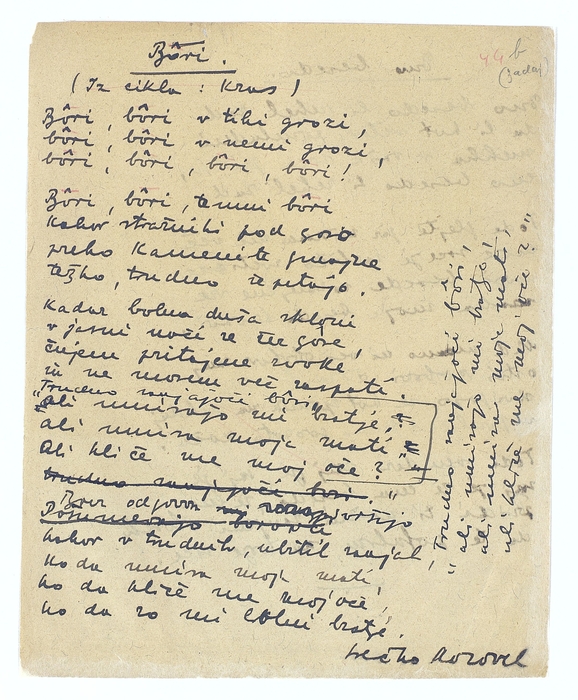 44 b
(Jadar)
Bôri.
(Iz cikla: Kras)
Bôri, bôri v tihi grozi,
bôri, bôri v nemi grozi,
bôri, bôri, bôri, bôri!
Bôri, bôri, temni bôri
kakor stražniki pod goro
preko kamenite gmajne
težko, trudno šepetajo.
Kadar bolna duša skloni
v jasni noči se čez gore,
čujem pritajene zvoke
in ne morem več zaspati.
"Trudno sanjajoči bôri,
ali umirajo mi bratje,
ali umira moja mati,
ali kliče me moj oče?"
trudno sanjajoči bori.
Brez odgovora vršijo
kakor v trudnih, ubitih sanjah,
ko da umira moja mati,
ko da kliče me moj oče,
ko da so mi bolni bratje.
Srečko Kosovel
"Trudno sanjajoči bôri,
ali umirajo mi bratje,
ali umira moja mati,
ali kliče me moj oče?"